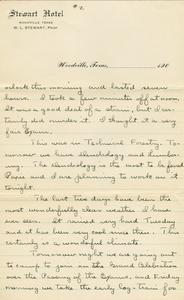 #2
Stewart Hotel
Woodville, Texas
W. L. Stewart, Prop
Woodville, Texas, 190
o'clock this morning and lasted seven
hours. I took a few minutes off at noon.
It was a good deal of a strain, but I cer-
tainly did murder it. I thought it a very
fair Exam.
This was in Technical Forestry. To-
morrow we have Dendrology and Lumber-
ing. The Dendrology is the most to be
and we are planning to work on it
tonight.
The last two days have been the
most wonderfully clear weather I have
ever seen. It rained very hard Tuesday
and it has been very cool since then. This
certainly is a wonderful climate.
Tomorrow night we are going out
to camp to join in the Grand Celebration
over the Passing of the Exams, and Friday
morning we take the early log-train for